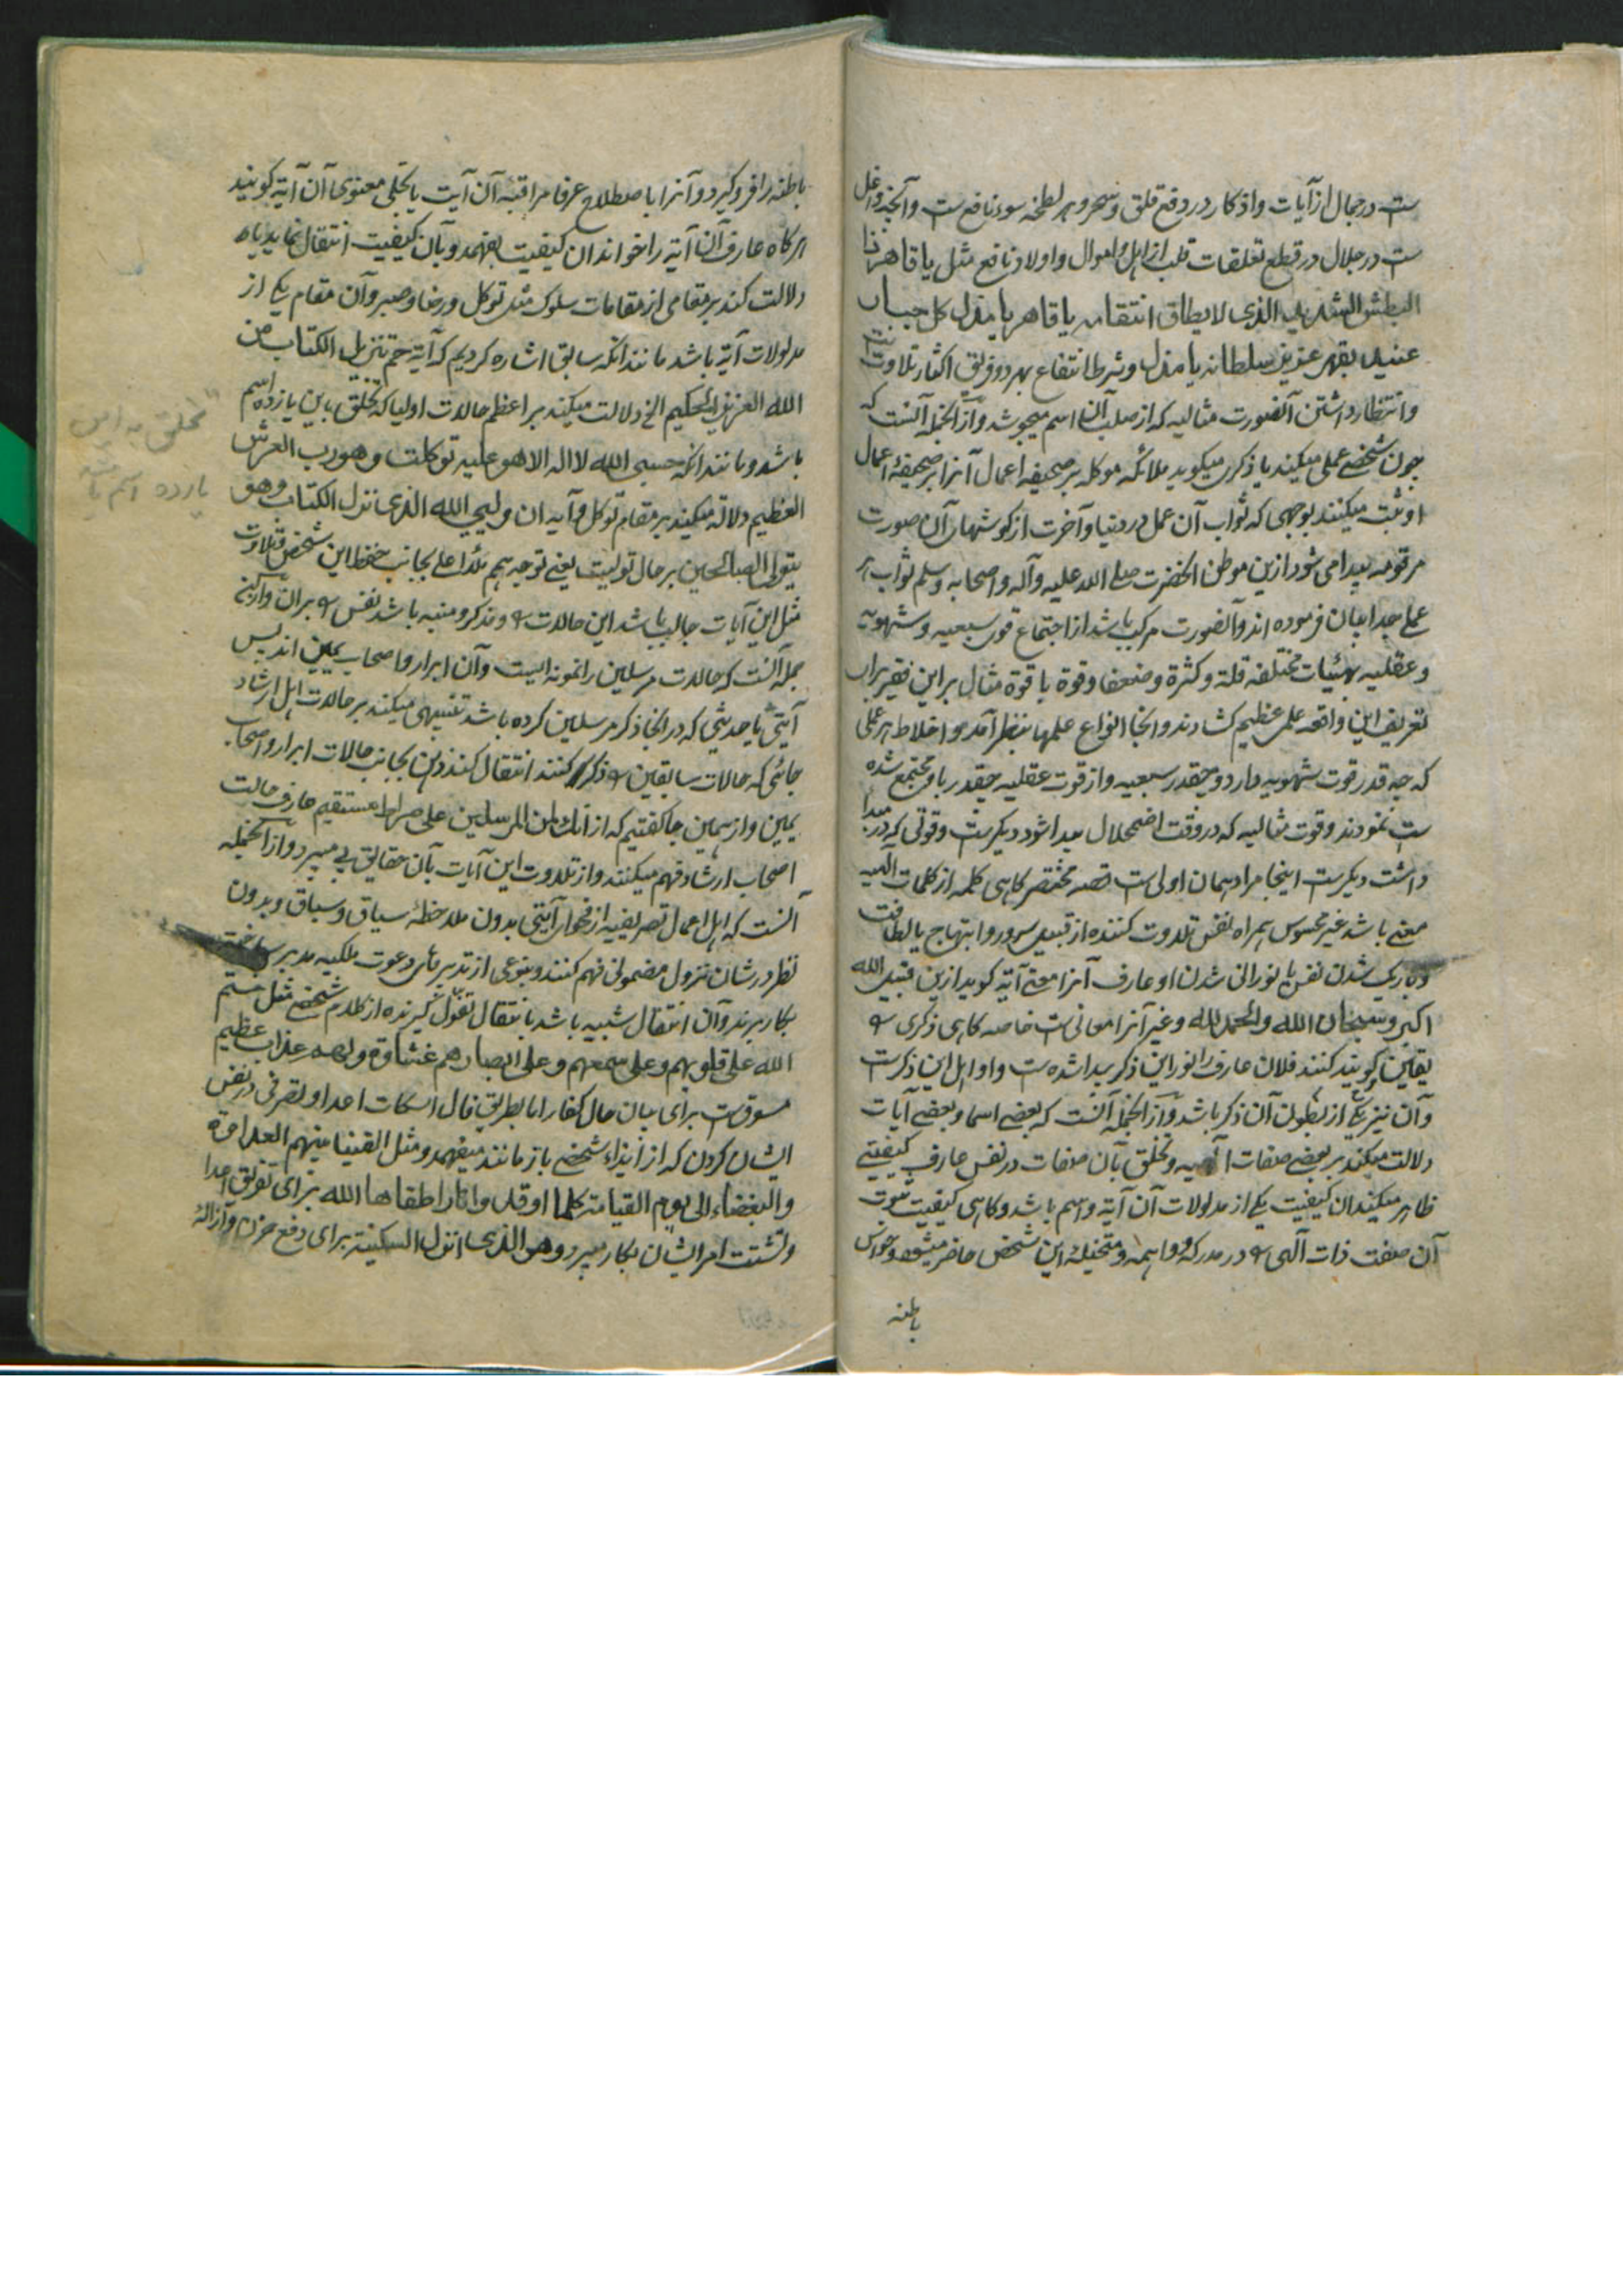 ست در جمال از آیات و اذکار در دفع قلق و سحر و هر لطخه سوء نافع ست و آنچه داخل
ست در جلال در قطع تعلقات قلب از اهل و اموال و اولاد نافع مثل یا قاهر ذا
البطش الشدید الذی لا یطاق انتقامه یا قاهر یا مذل کل جبار
عنید بقهر عزیز سلطانه یا مذل و شرط انتفاع بهر دو فریق اکثار تلاوت ست
و انتظار داشتن آنصورت مثالیه که از صلب آن اسم میجوشد و از آنجمله آنست که
چون شخصی عملی میکند یا ذکری میگوید ملائکه موکله بر صحیفه اعمال آنرا بر صحیفهٔ اعمال
او ثبت میکنند بوجهی که ثواب آن عمل در دنیا و آخرت از گوشهای آن صورت
مرقومه پیدا می شود ازین موطن آنحضرت صلی الله علیه و آله و اصحابه و سلم ثواب هر
عملی جدا بیان فرموده اند و آنصورت مرکب باشد از اجتماع قوی سبعیه و شهویه
و عقلیه بهیئات مختلفه قلة و کثرة و ضعفا و قوة با قوة مثال بر این فقیر برای
تعریف این واقعه علمی عظیم کشادند و آنجا انواع علمها بنظر آمد و اخلاط هر عملی
که چه قدر قوت شهویه دارد و چقدر سبعیه و از قوت عقلیه چقدر باو مجتمع شده
ست نمودند و قوت مثالیه که در وقت اضمحلال پیدا شود دیگرست و قوتی که در مبدا
داشت دیگرست اینجا مراد همان اولی ست قصه مختصر گاهی کلمه از کلمات الهیه
معنی باشد غیر محسوس همراه نفس تلاوت کننده از قبیل سرور و ابتهاج یا لطافت
و باریک شدن نفس یا نورانی شدن او عارف آنرا معنی آیه گوید ازین قبیل الله
اکبر و سبحان الله والحمد لله و غیر آنرا معانی ست خاصه گاهی ذکری را
یقین گویند کنند فلان عارف را نور این ذکر پیدا شده ست و اوایل این ذکرست
و آن نیز یکی از بطون آن ذکر باشد و از آنجمله آنست که بعضی اسما و بعضی آیات
دلالت میکند بر بعضی صفات الهیه و تخلق بآن صفات در نفس عارف کیفیتی
ظاهر میکند آن کیفیت یکی از مدلولات آن آیه و اسم باشد و گاهی کیفیت ثبوت
آن صفت ذات آلهی را در مدرکه و واهمه و متخیلهٔ این شخص حاضر میشود و حواس
باطنه
باطنه را فرو گیرد و آنرا باصطلاح عرفا مراقبهٔ آن آیت یا تجلی معنوی آن آیة گویند
هرگاه عارف آن آیة را خواند آن کیفیت بفهمد و بآن کیفیت انتقال نماید یا
دلالت کند بر مقامی از مقامات سلوک مثل توکل و رضا و صبر و آن مقام یکی از
مدلولات آیة باشد مانند آنکه سابق اشاره کردیم که آیة حم تنزیل الکتاب من
الله العزیز الحکیم الخ دلالت میکند بر اعظم حالات اولیا که تخلق باین یازده اسم
باشد و مانند آنکه حسبی الله لا اله الا هو علیه توکلت و هو رب العرش
العظیم دلالة میکند بر مقام توکل و آیه ان ولیی الله الذی نزل الکتاب وهو
یتولی الصالحین بر حال تولیت یعنی توجه همم ملاء اعلی بجانب حفظ این شخص و تلاوت
مثل این آیات جالب باشد این حالت را و مذکر و منبه باشد نفس را بر آن و از آن
جمله آنست که حالات مرسلین را نمونه ایست و آن ابرار و اصحاب یمین اند پس
آیتی یا حدیثی که در آنجا ذکر مرسلین کرده باشد تنبیهی میکند بر حالات اهل ارشاد
جائی که حالات سابقین را ذکر کنند انتقال کنند ذهن بجانب حالات ابرار و اصحاب
یمین و از همین جا گفتیم که از انک لمن المرسلین علی صراط مستقیم عارف حالت
اصحاب ارشاد فهم میکنند و از تلاوت این آیات بآن حقایق پی میبرد و از آنجمله
آنست که اهل اعمال تصریفیه از فحوای آیتی بدون ملاحظهٔ سیاق و سباق و بدون
نظر در شان نزول مضمونی فهم کنند و بنوعی از تدبیر بأی دعوت ملکیه مدبر ساخته
بکار برند و آن انتقال شبیه باشد بانتقال تفوّل گیرنده از کلام شخصی مثل ختم
الله علی قلوبهم و علی سمعهم و علی ابصارهم غشاوة ولهم عذاب عظیم
مسوق ست برای بیان حال کفار اما بطریق فال اسکات اعدا و تصرفی در نفس
ایشان کردن که از ایذاء شخصی باز مانند میفهمد و مثل القینا بینهم العداوة
والبغضاء الی یوم القیامة کلما اوقدوا نارا اطفاها الله برای تفریق اعدا
و تشتت امر ایشان بکار میبرد و هو الذی انزل السکینة برای دفع حزن و ازاله
تخلق به این
یازده اسم باشد